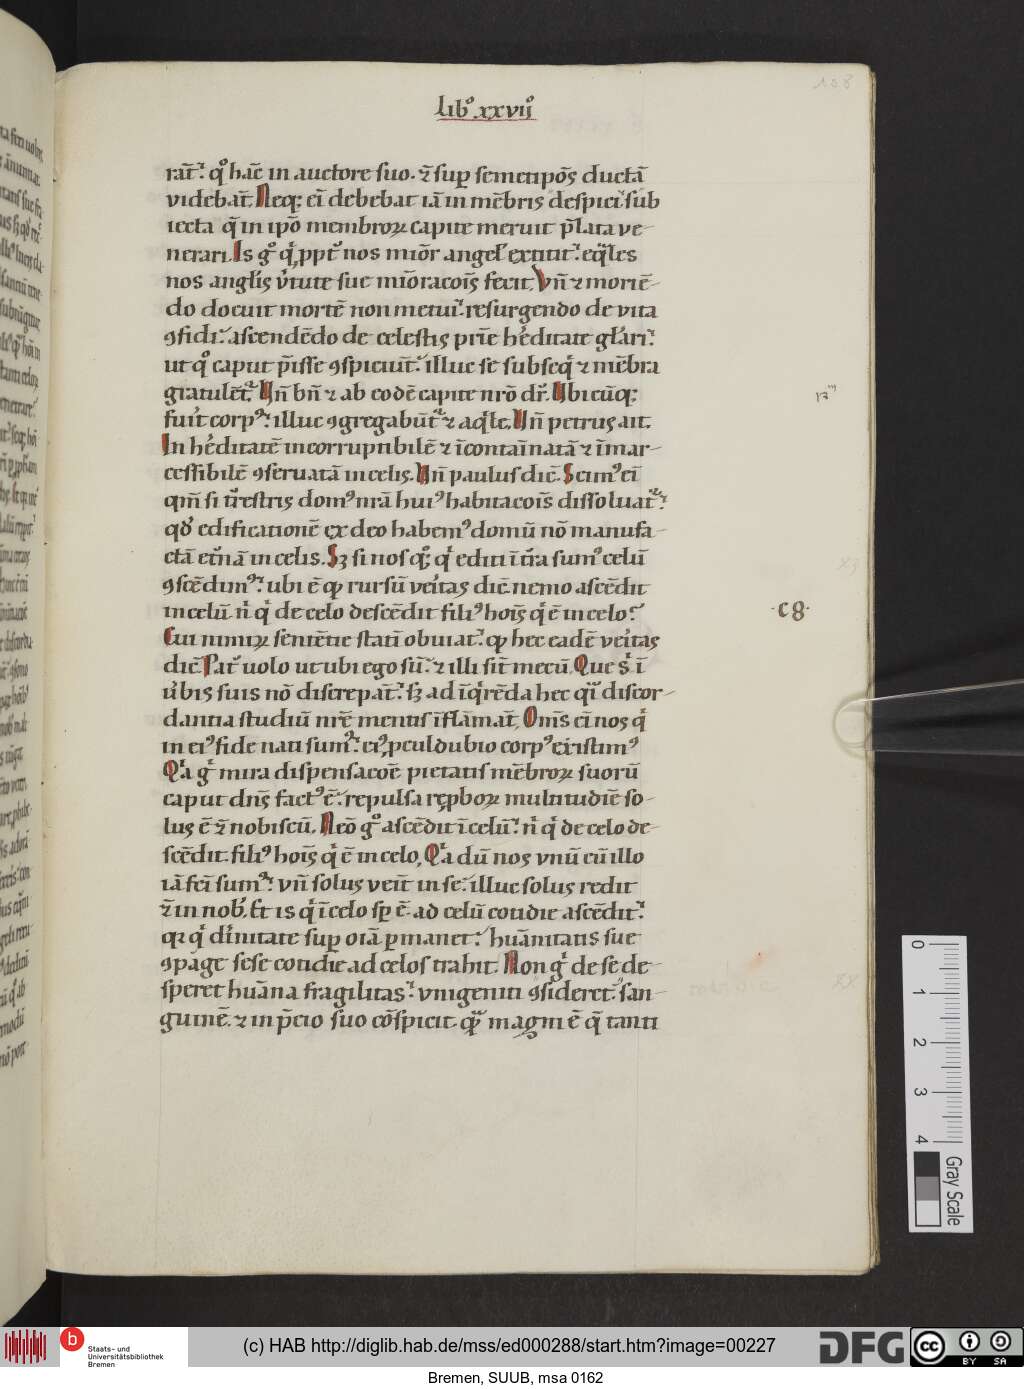 Lib⁹ xxvij⁹
rat̄. q̊ hāc in auctore suo. ⁊ sup̱ semetip̄os ductā
videbat̄. Neq; ei̅ debebat iā in mēbris despici sub
iecta q̄ in ip̄o membroꝝ capite meruit p̄lata ve-
nerari. Is gͦ qͥ ꝓpt̄ nos mi̅or angel̕ extitit. eq̄les
nos angl̕is v̕tute sue mi̅oracōis fecit. Vn̄ ⁊ moriē-
do docuit mortē non metui. resurgendo de vita
ꝯfidi. ascendēdo de celestis pr̄ie h̕editate gl̕ari.
ut q̊ caput p̄isse ꝯspiciūt. illuc se subseqͥ ⁊ mēbra
gratulēt̄. Vn̄ bn̄ ⁊ ab eodē capite nr̄o dr̄. Vbicūq;
fu̕it corpꝰ. illuc ꝯgregabūt̄ ⁊ aqͥle. Vn̄ petrus ait.
In h̕editatē incorruptibilē ⁊ īcontaīnatā ⁊ īmar-
cessibilē ꝯseruatā in celis. Vn̄ paulus dic̄. Scimꝰ ei̅
qm̄ si t̄restris domꝰ nr̄a huiꝰ habitacōis dissoluat̄.
qd̕ edificationē ex deo habemꝰ domū nō manufa-
ctā et̄nā in celis. Sꝫ si nos q̊; qͥ editi ī t̄ra sumꝰ celū
ꝯscēdimꝰ. ubi ē ꝙ rursū ve̕itas dic̄ nemo ascēdit
in celū. n̄ qͥ de celo descēdit filiꝰ hoi̅s qͥ ē in celo?
Cui nimiꝝ sentētie statī obuiat. ꝙ hec eadē ve̕itas
dic̄. Pat̄ uolo ut ubi ego sū. ⁊ illi sīt mecū. Que sͥ ī
v̕bis suis nō discrepāt. sꝫ ad īqͥrēda hec qͣi̅ discor-
dantia studiū nr̄e mentis īflāmāt. Om̄s ei̅ nos qͥ
in eiꝰ fide nati sumꝰ. eiꝰ ꝓculdubio corpꝰ existimꝰ
Qͥa gͥ mira dispensacōe pietatis mēbroꝝ suorū
caput dn̄s factꝰ ē. repulsa rep̱boꝝ multitudīe so-
lus ē ⁊ nobiscū. Neō gͦ ascēdit ī celū. n̄ qͥ de celo de-
scēdit. filiꝰ hoi̅s qͥ ē in celo. Qͥa dū nos vnū cū illo
iā fc̄i sumꝰ. vn̄ solus veīt in se. illuc solus redit
⁊ in nob̕. Et is qͥ ī celo sp̱ ē. ad celū cotidie ascēdit.
qꝛ qͥ di̕nitate sup̱ oi̅a p̱manet. hūanitatis sue
ꝯpāge sese cotidie ad celos trahit. Non gͥ de se de-
speret hūana fragilitas. vnigeniti ꝯsideret san-
guinē. ⁊ in p̄cio suo cōspicit ꝙͣ magni ē q̄ tanti
·c8·
0
1
2
3
4
Gray Scale
b Staats- und
Universitätsbibliothek
Bremen
(c) HAB http://diglib.hab.de/mss/ed000288/start.htm?image=00227
DFG
cc BY SA
Bremen, SUUB, msa 0162